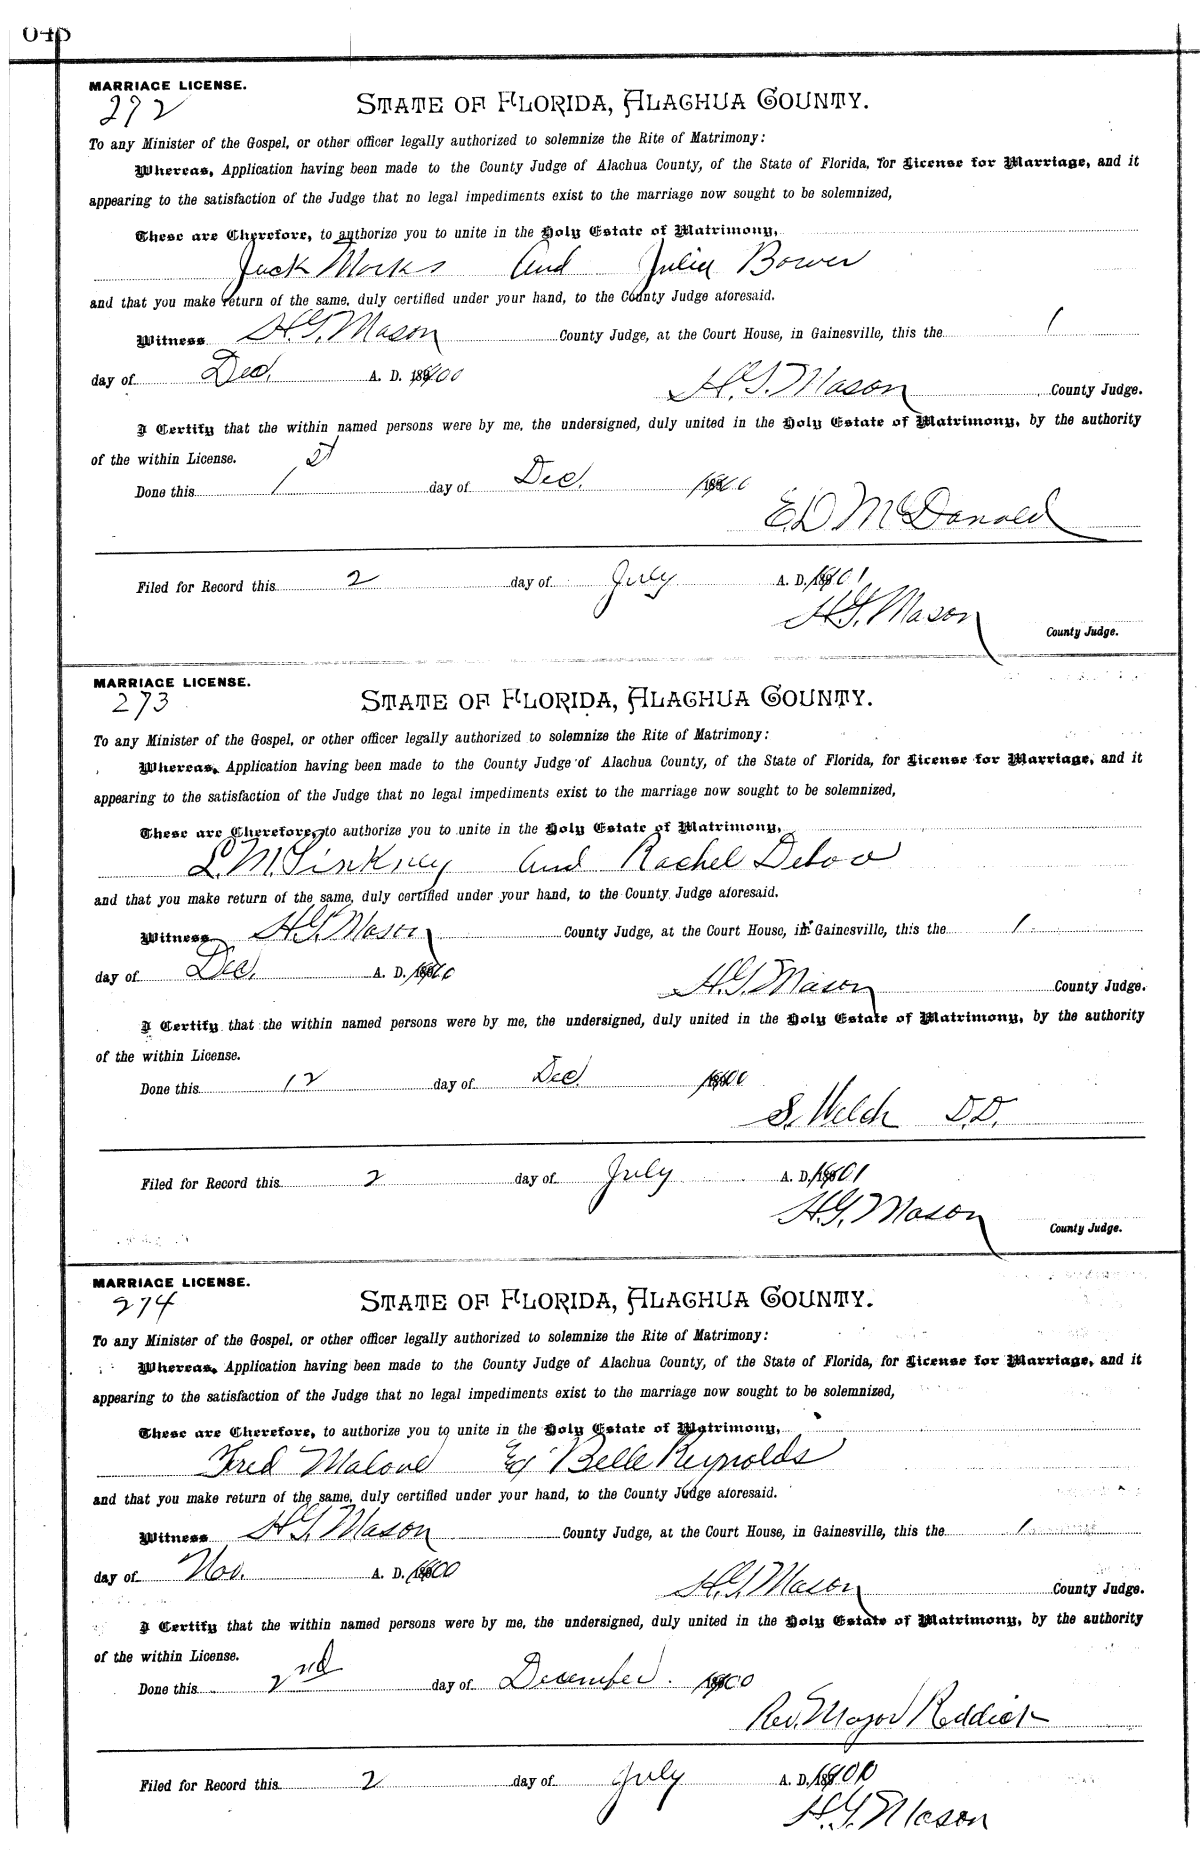 MARRIAGE LICENSE.
272
STATE OF FLORIDA, ALACHUA COUNTY.
To any Minister of the Gospel, or other officer legally authorized to solemnize the Rite of Matrimony:
Whereas, Application having been made to the County Judge of Alachua County, of the State of Florida, for License for Marriage, and it
appearing to the satisfaction of the Judge that no legal impediments exist to the marriage now sought to be solemnized,
These are Therefore, to authorize you to unite in the Holy Estate of Matrimony,
Jack Marks and Julia Bower
and that you make return of the same, duly certified under your hand, to the County Judge aforesaid.
Witness H.G. Mason County Judge, at the Court House, in Gainesville, this the 1
day of Dec. A. D. 1900
H.G. Mason County Judge.
I Certify that the within named persons were by me, the undersigned, duly united in the Holy Estate of Matrimony, by the authority
of the within License.
Done this 1st day of Dec. 1900
E.D. McDonald
Filed for Record this 2 day of July A. D. 1901
H.G. Mason
County Judge.
MARRIAGE LICENSE.
273
STATE OF FLORIDA, ALACHUA COUNTY.
To any Minister of the Gospel, or other officer legally authorized to solemnize the Rite of Matrimony:
Whereas, Application having been made to the County Judge of Alachua County, of the State of Florida, for License for Marriage, and it
appearing to the satisfaction of the Judge that no legal impediments exist to the marriage now sought to be solemnized,
These are Therefore, to authorize you to unite in the Holy Estate of Matrimony,
L.M. Pinkney and Rachel Debow
and that you make return of the same, duly certified under your hand, to the County Judge aforesaid.
Witness H.G. Mason County Judge, at the Court House, in Gainesville, this the 1
day of Dec. A. D. 1900
H.G. Mason County Judge.
I Certify that the within named persons were by me, the undersigned, duly united in the Holy Estate of Matrimony, by the authority
of the within License.
Done this 12 day of Dec 1900
S. Welch D.D.
Filed for Record this 2 day of July A. D. 1901
H.G. Mason
County Judge.
MARRIAGE LICENSE.
274
STATE OF FLORIDA, ALACHUA COUNTY.
To any Minister of the Gospel, or other officer legally authorized to solemnize the Rite of Matrimony:
Whereas, Application having been made to the County Judge of Alachua County, of the State of Florida, for License for Marriage, and it
appearing to the satisfaction of the Judge that no legal impediments exist to the marriage now sought to be solemnized,
These are Therefore, to authorize you to unite in the Holy Estate of Matrimony,
Fred Malone & Belle Reynolds
and that you make return of the same, duly certified under your hand, to the County Judge aforesaid.
Witness H.G. Mason County Judge, at the Court House, in Gainesville, this the 1
day of Nov. A. D. 1900
H.G. Mason County Judge.
I Certify that the within named persons were by me, the undersigned, duly united in the Holy Estate of Matrimony, by the authority
of the within License.
Done this 2nd day of December. 1900
Rev. Major Reddick
Filed for Record this 2 day of July A. D. 1900
H.G. Mason